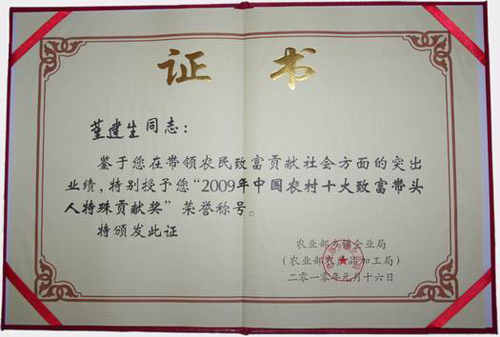 证 书
董建生同志：
鉴于您在带领农民致富贡献社会方面的突出
业绩，特别授予您“2009年中国农村十大致富带头
人特殊贡献奖”荣誉称号。
特颁发此证
农业部乡镇企业局
（农业部农产品加工局）
二〇一〇年元月十六日